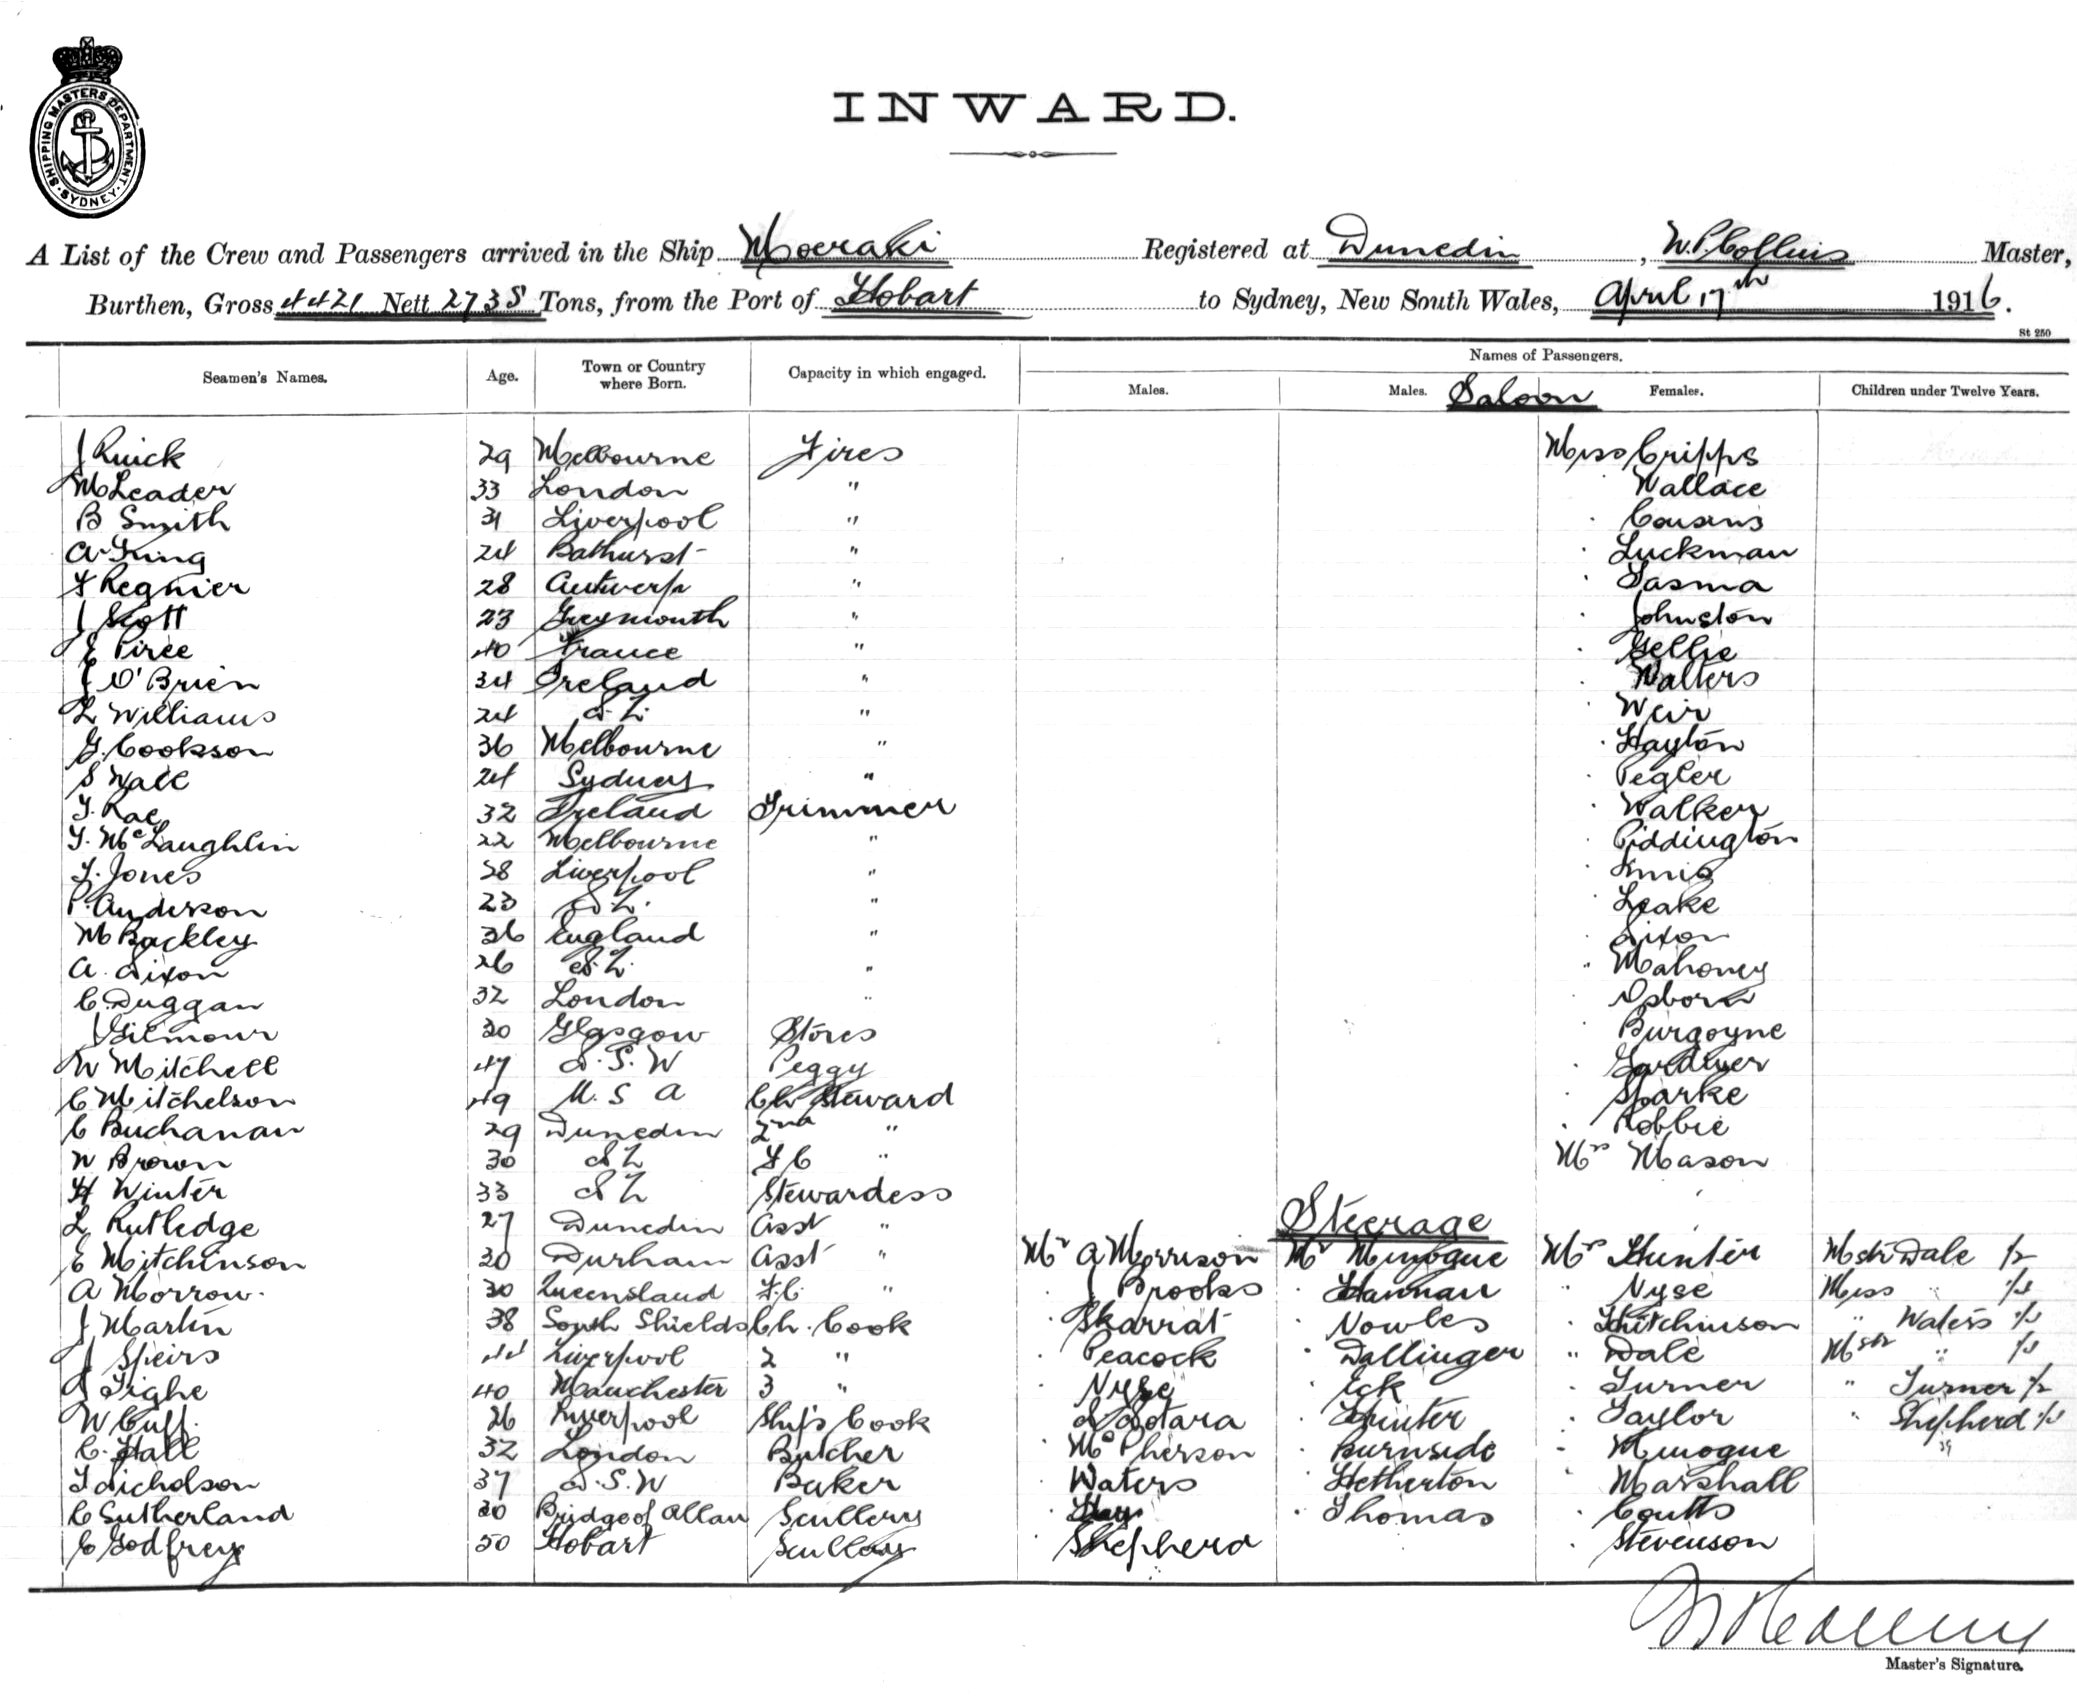 SHIPPING MASTERS DEPARTMENT · SYDNEY ·
INWARD.
A List of the Crew and Passengers arrived in the Ship Moeraki Registered at Dunedin, W.P. Collins Master,
Burthen, Gross 4421 Nett 2738 Tons, from the Port of Hobart to Sydney, New South Wales, April 17th 1916.
St 250
Names of Passengers.
Seamen's Names. Age. Town or Country where Born. Capacity in which engaged. Males. Males. Saloon Females. Children under Twelve Years.
J Quick 29 Melbourne Fires Miss Cripps
M Leader 33 London " Wallace
B Smith 31 Liverpool " . Cousins
A King 24 Bathurst " . Luckman
F Regnier 28 Antwerp " . Tasma
J Scott 23 Greymouth " . Johnston
E Piree 40 France " . Gellie
J O'Brien 34 Ireland " . Walters
L Williams 24 N.Z. " . Weir
G. Cookson 36 Melbourne " . Hayton
S Wall 24 Sydney " . Pegler
T. Rae 32 Ireland Trimmer . Walker
T. McLaughlin 22 Melbourne " . Piddington
T. Jones 28 Liverpool " . Innis
P. Anderson 23 N.Z. " . Leake
M Backley 36 England " . Dixon
A. Dixon 26 N.Z. " " Mahoney
C. Duggan 32 London " . Osborn
J Gilmour 30 Glasgow Stores . Burgoyne
W Mitchell 47 N.S.W Peggy . Gardiner
C Mitchelson 49 U.S A Ch Steward . Sparke
C Buchanan 29 Dunedin 2nd " . Robbie
W Brown 30 N Z F C " Mrs Mason
H Winter 33 N Z Stewardess
L Rutledge 27 Dunedin Asst " Steerage
E Mitchinson 30 Durham Asst " Mr A Morrison Mr Minogue Mrs Hunter Mstr Dale 1/2
A Morrow. 30 Queensland F.C. " . J Brooks . Hannan " Nyse Miss "
J Martin 38 South Shields Ch. Cook . Skarrat . Nowles . Hutchinson " Waters
J Speirs 44 Liverpool 2 " . Peacock . Dallinger " Dale Mstr "
J Tighe 40 Manchester 3 " . Nyse . Eck . Turner " Turner 1/2
W Cuff. 26 Liverpool Ship's Cook . . Hunter . Taylor " Shepherd
C. Hall 32 London Butcher . McPherson . Burnside . Minogue
T Nicholson 37 N.S.W Baker . Waters . Hetherton " Marshall
C Sutherland 30 Bridge of Allan Scullery . Hay . Thomas . Coutts
C Godfrey 50 Hobart Scullery . Shepherd . Stevenson
Master's Signature.